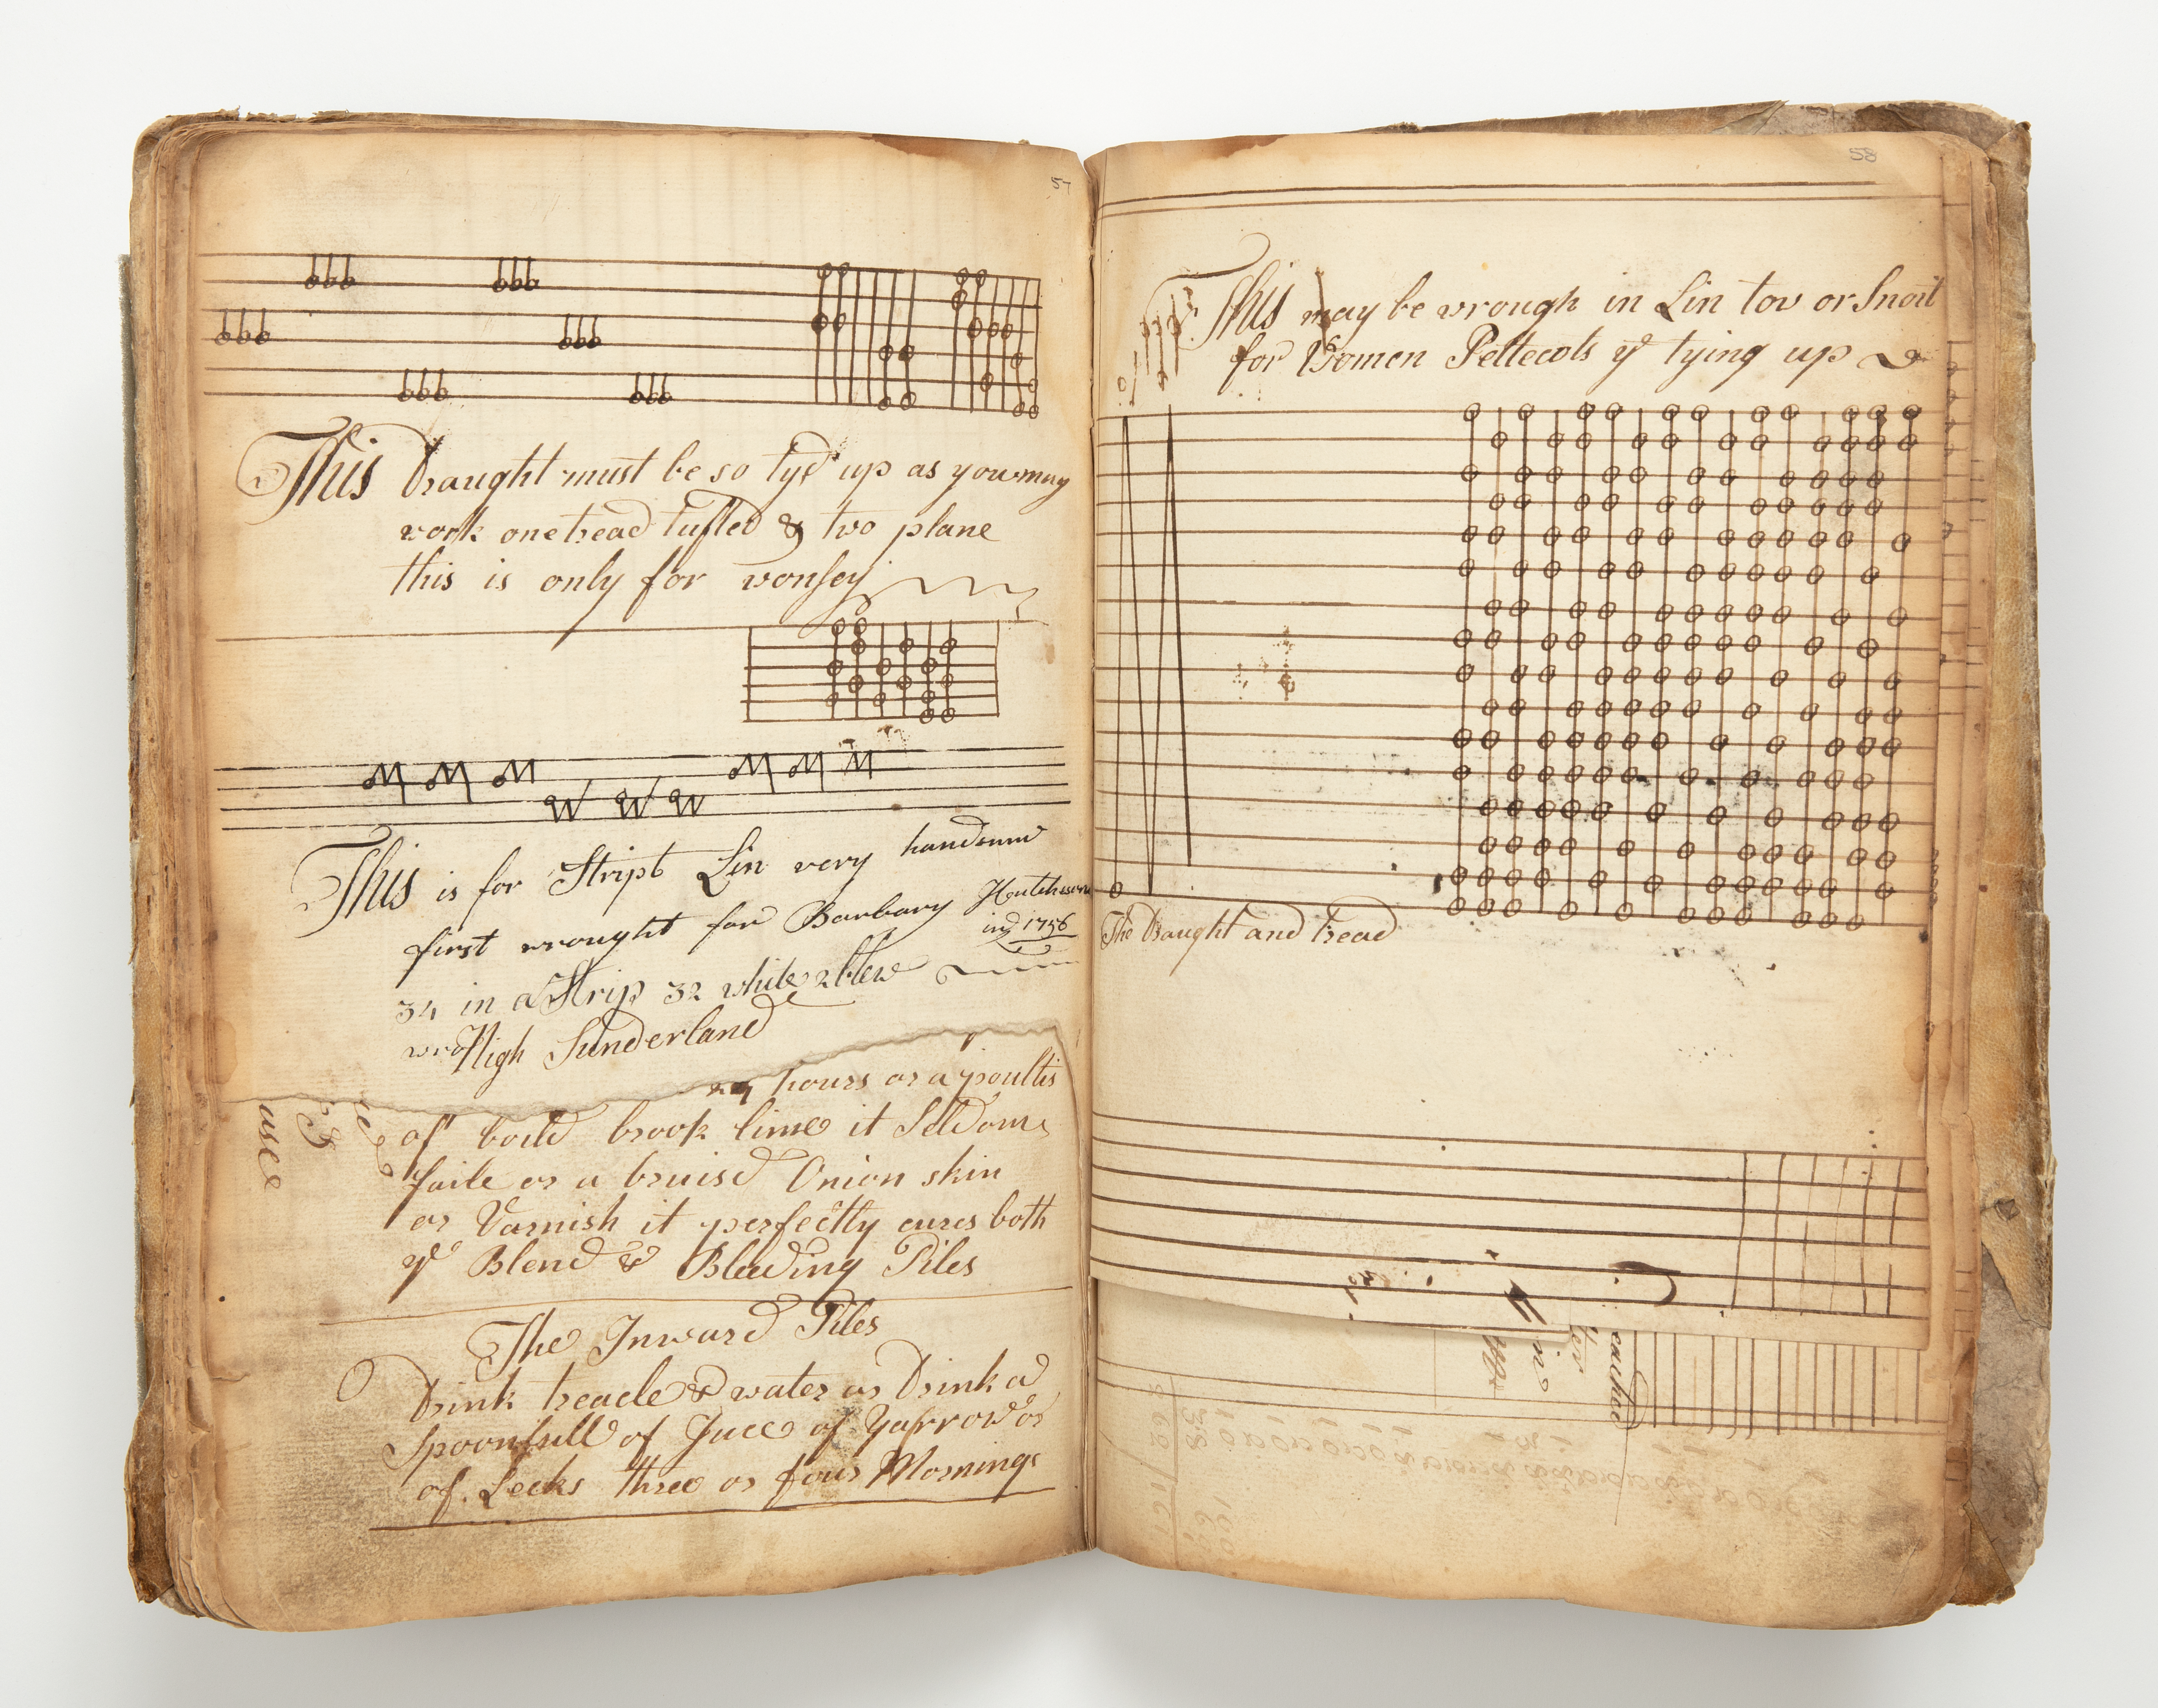 57
This Draught must be so tyd up as you may
work one tread tufted & two plane
this is only for wonsey
This is for Stript Lin very handsome
first wrought for Barbary Hutchisson
in 1756
34 in a Strip 32 white 2 blew
High Sunderland
24 hours or a poultis
of boild brook lime it Seldom
faile or a bruisd Onion skin
or Varnish it perfectly cures both
ye Blend & Bleeding Piles
The Inward Piles
Drink treacle & water or Drink a
Spoonfull of Juce of Yarrow or
of Leeks three or four Mornings
58
This may be wrough in Lin tow or Snail
for Women Pettecots ye tying up
The Draught and tread